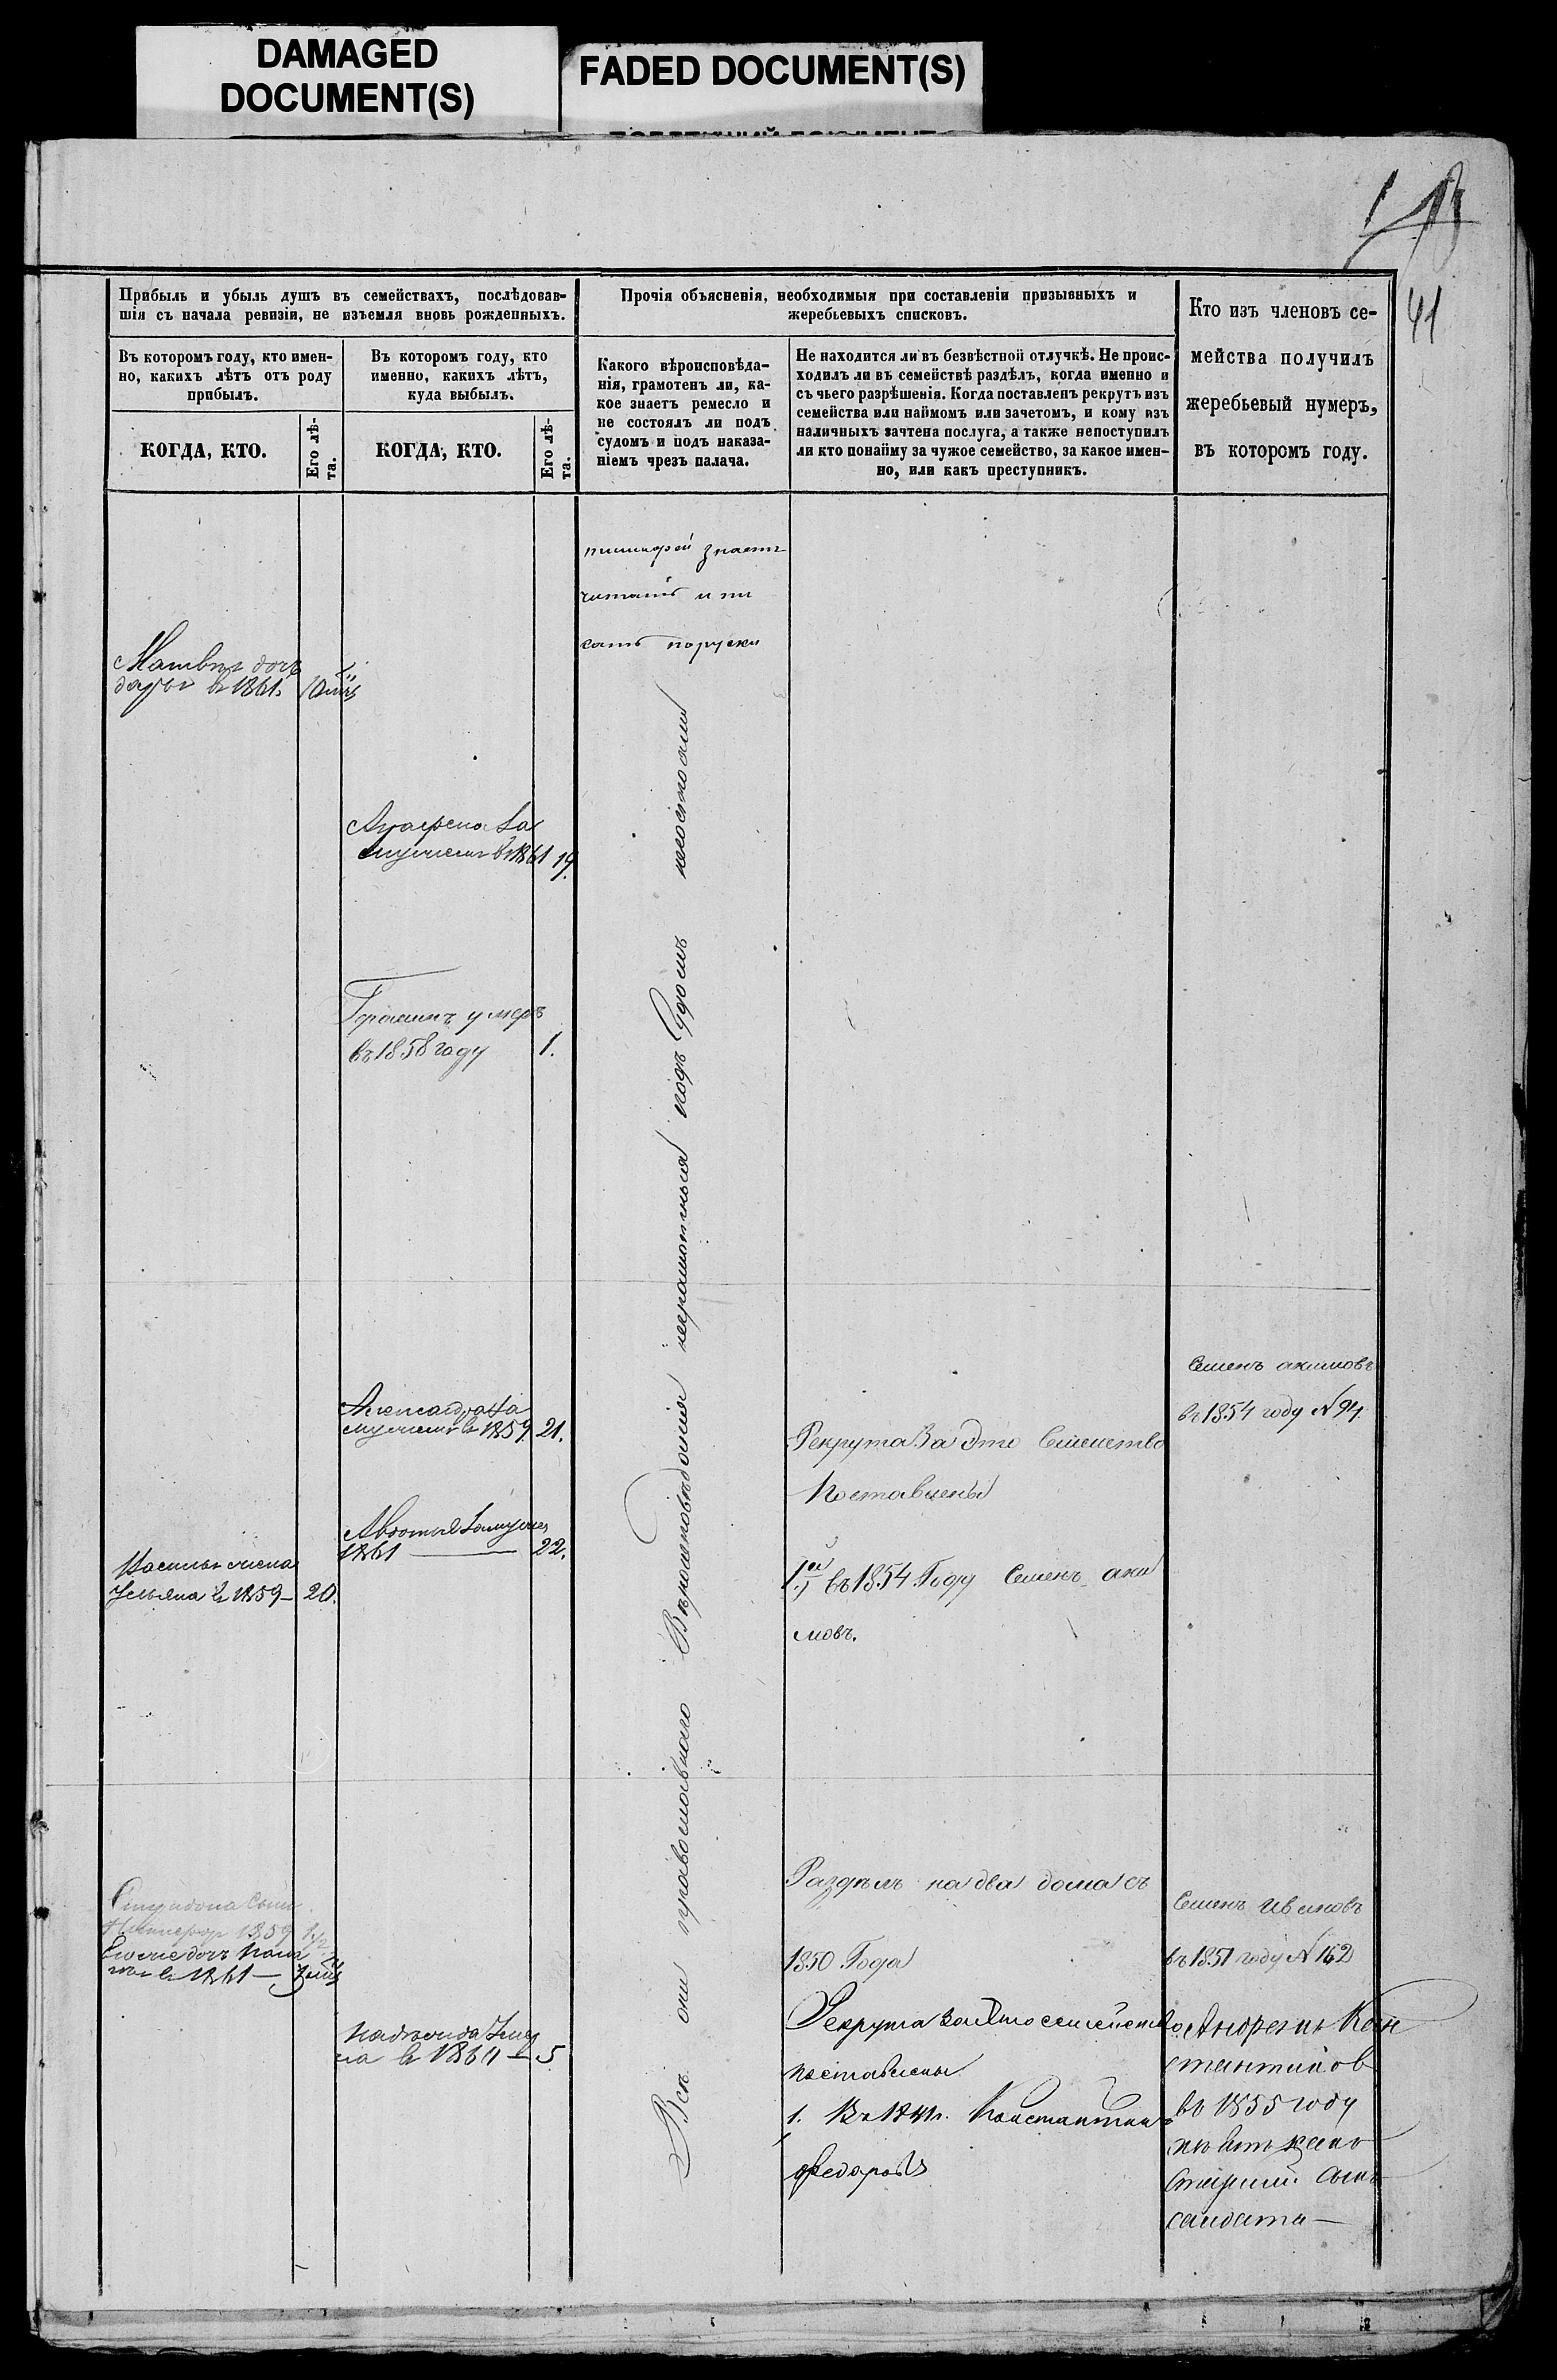 DAMAGED
DOCUMENT(S)
FADED DOCUMENT(S)
41
Прибыль и убыль душъ въ семействахъ, послѣдовав-
шія съ начала ревизіи, не изъемля вновь рожденныхъ.
Прочія объясненія, необходимыя при составленіи призывныхъ и
жеребьевыхъ списковъ.
Кто изъ членовъ се-
мейства получилъ
жеребьевый нумеръ,
въ которомъ году.
Въ которомъ году, кто имен-
но, какихъ лѣтъ отъ роду
прибылъ.
Въ которомъ году, кто
именно, какихъ лѣтъ,
куда выбылъ.
Какого вѣроисповѣда-
нія, грамотенъ ли, ка-
кое знаетъ ремесло и
не состоялъ ли подъ
судомъ и подъ наказа-
ніемъ чрезъ палача.
Не находится ли въ безвѣстной отлучкѣ. Не проис-
ходилъ ли въ семействѣ раздѣлъ, когда именно и
съ чьего разрѣшенія. Когда поставленъ рекрутъ изъ
семейства или наймомъ или зачетомъ, и кому изъ
наличныхъ зачтена послуга, а также непоступилъ
ли кто понайму за чужое семейство, за какое имен-
но, или какъ преступникъ.
КОГДА, КТО.
Его лѣ-
та.
КОГДА, КТО.
Его лѣ-
та.
знаетъ
читать и пи
сать поруски
Матвѣя дочь
дарья въ 1861.
Аграфена За
мужемъ въ 1861 19.
Герасимъ умеръ
въ 1858 году 1.
Александра За
мужемъ въ 1859. 21.
Авдотья Замужемъ
1861 — 22.
Василья жена
Ульяна въ 1859 — 20.
Спиридона сынъ
Никифоръ 1859
Его же дочь
въ 1861 —
Надежда
въ 1864 — 5
Всѣ они православнаго Вѣроисповѣдания неграмотныя подъ Судомъ несостояли
Рекрута За Это Семейство
Поставлены
1й въ 1854 Году Семенъ аки
мовъ.
Семенъ акимовъ
въ 1854 году № 94.
Раздѣлъ на два дома съ
1850 Года
Рекрута за Это семейство
поставлены
1. Константинъ
Федоровъ
Семенъ Ивановъ
въ 1851 году № 162
Андреянъ Кон
стантинов
въ 1855 году
сынъ
салдата —